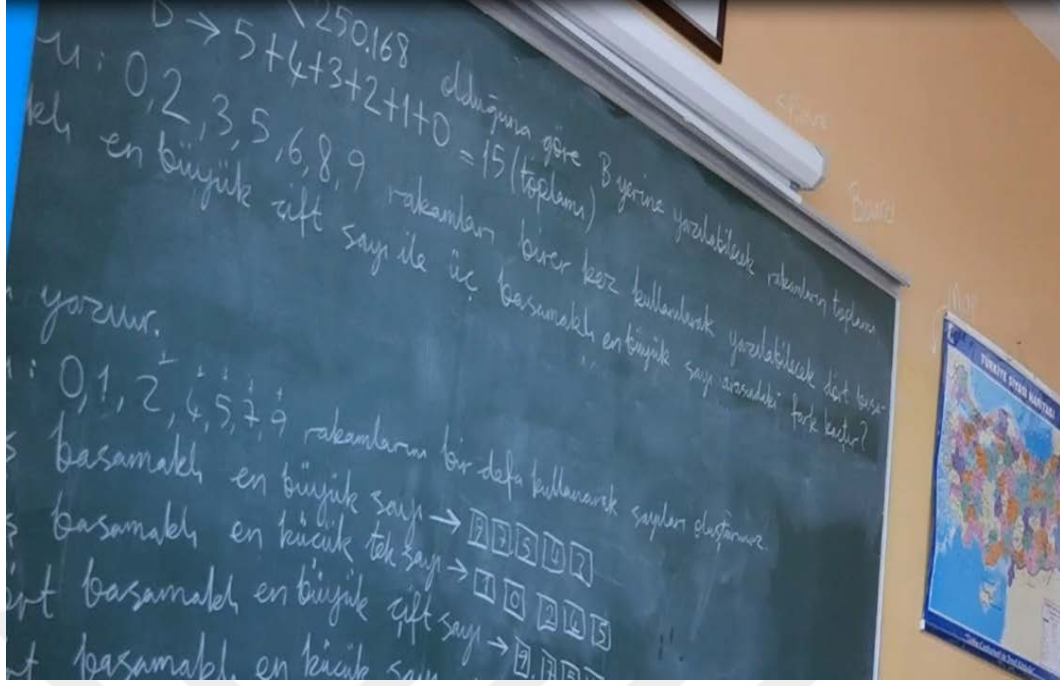 250.168 olduğuna göre B yerine yazılabilecek rakamların toplamı
B → 5+4+3+2+1+0 = 15 (toplamı)
: 0,2,3,5,6,8,9 rakamları birer kez kullanılarak yazılabilecek dört basa-
en büyük çift sayı ile üç basamaklı en büyük sayı arasındaki fark kaçtır?
yazınız.
: 0,1,2,4,5,7,9 rakamlarını bir defa kullanarak sayıları oluşturunuz.
basamaklı en büyük sayı → 97542
basamaklı en küçük tek sayı → 10245
basamaklı en büyük çift sayı → 9.75
basamaklı en küçük sayı
Board
Map
TÜRKİYE SİYASİ HARİTASI